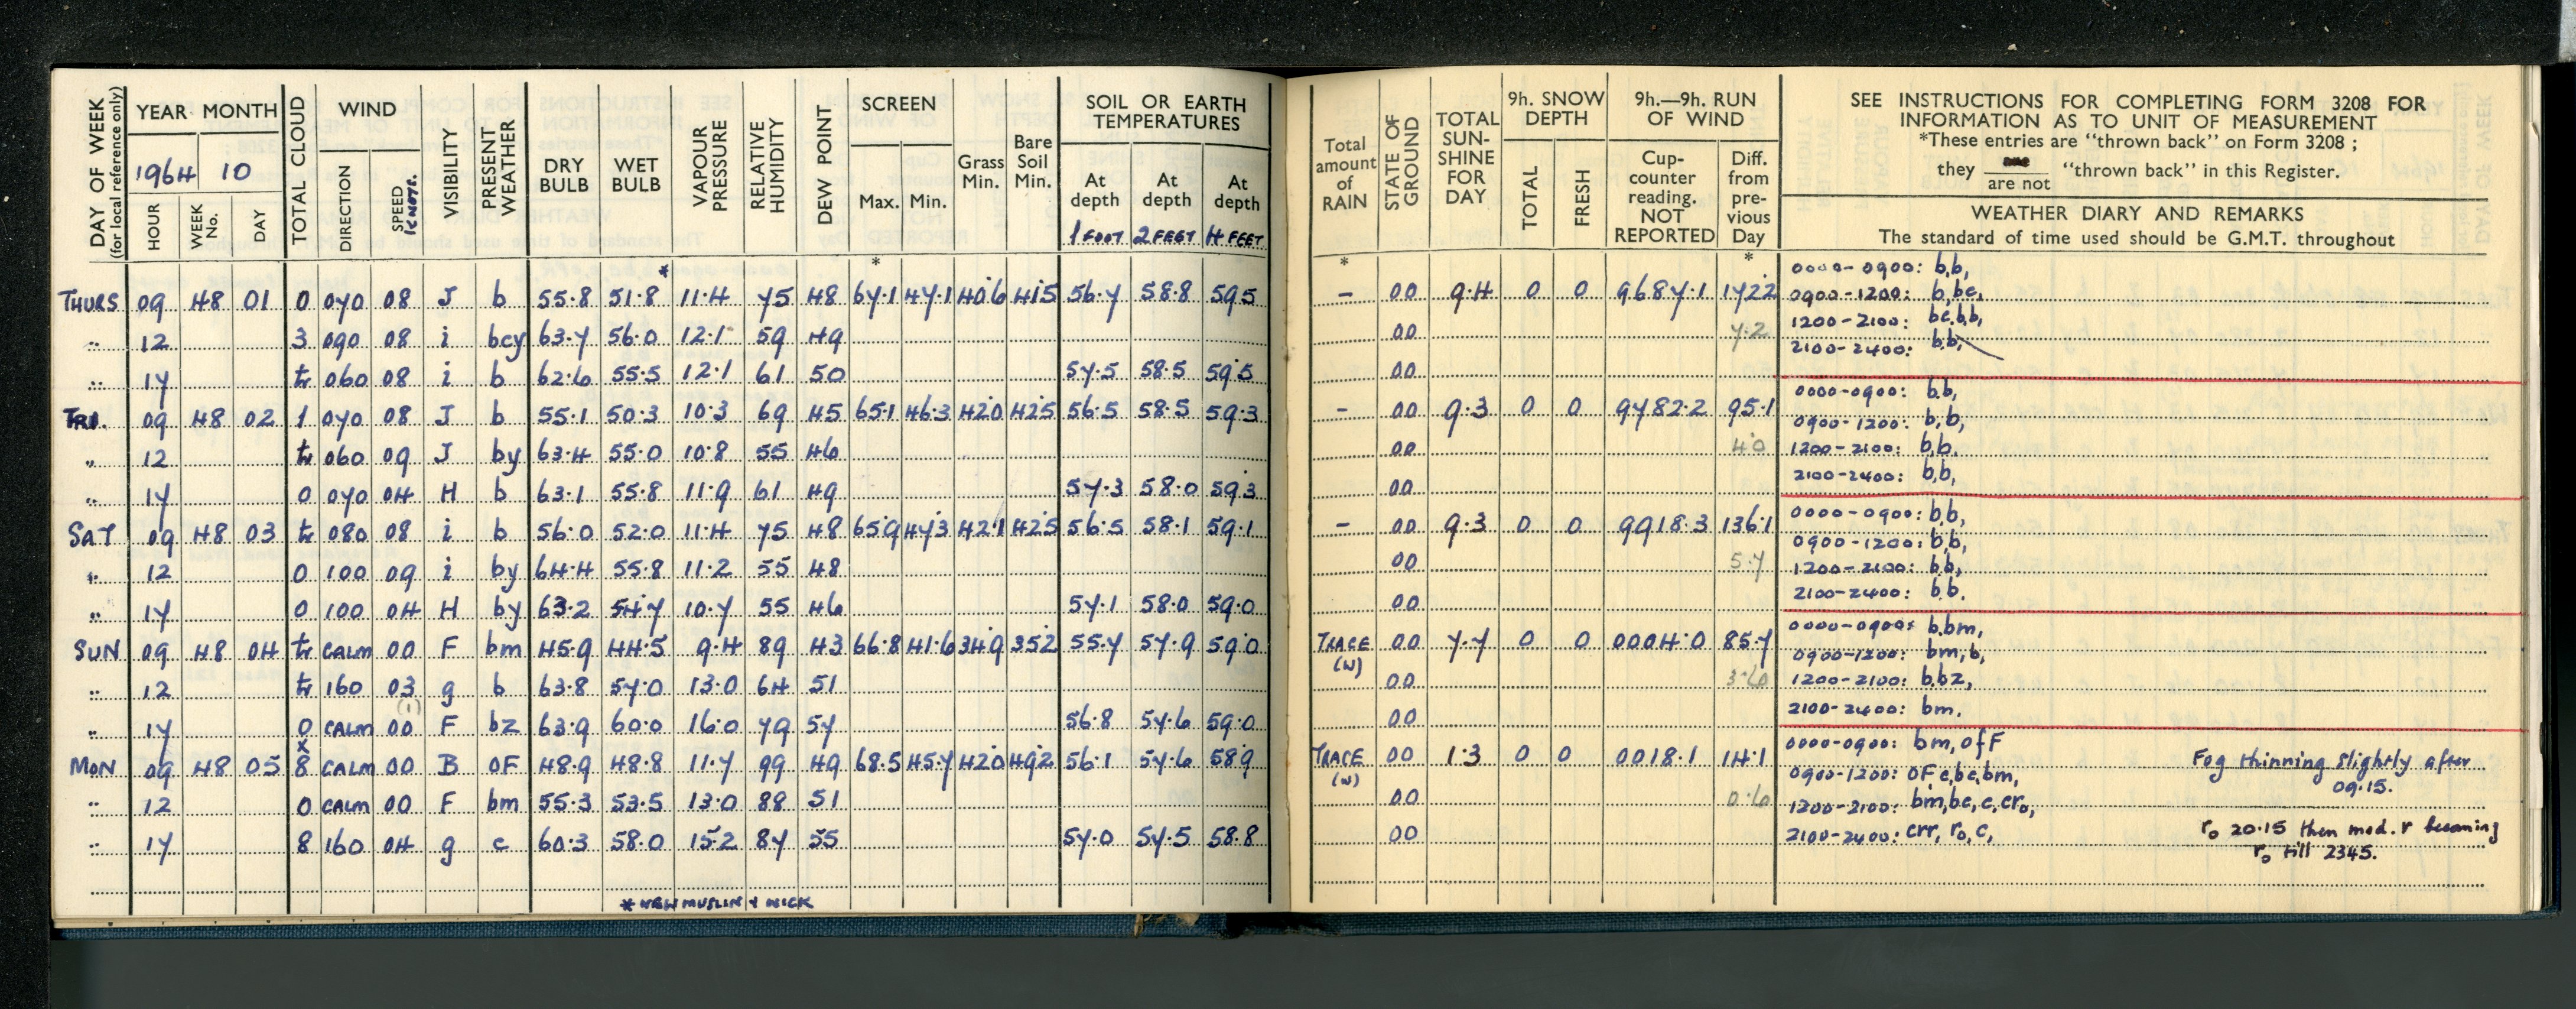 DAY OF WEEK (for local reference only) YEAR MONTH TOTAL CLOUD WIND VISIBILITY PRESENT WEATHER DRY BULB WET BULB VAPOUR PRESSURE RELATIVE HUMIDITY DEW POINT SCREEN Grass Min. Bare Soil Min. SOIL OR EARTH TEMPERATURES
1964 10
HOUR WEEK No. DAY DIRECTION SPEED KNOTS. Max. Min. At depth 1 FOOT At depth 2 FEET At depth 4 FEET
* *
THURS 09 48 01 0 070 08 J b 55.8 51.8 11.4 75 48 67.1 47.1 40.6 41.5 56.7 58.8 59.5
" 12 3 090 08 i bcy 63.7 56.0 12.1 59 49
" 17 tr 060 08 i b 62.6 55.5 12.1 61 50 57.5 58.5 59.5
FRI. 09 48 02 1 070 08 J b 55.1 50.3 10.3 69 45 65.1 46.3 42.0 42.5 56.5 58.5 59.3
" 12 tr 060 09 J by 63.4 55.0 10.8 55 46
" 17 0 070 04 H b 63.1 55.8 11.9 61 49 57.3 58.0 59.3
SAT 09 48 03 tr 080 08 i b 56.0 52.0 11.4 75 48 65.9 47.3 42.1 42.5 56.5 58.1 59.1
" 12 0 100 09 i by 64.4 55.8 11.2 55 48
" 17 0 100 04 H by 63.2 54.7 10.7 55 46 57.1 58.0 59.0
SUN 09 48 04 tr CALM 00 F bm 45.9 44.5 9.4 89 43 66.8 41.6 34.9 35.2 55.7 57.9 59.0
" 12 tr 160 03 g b 63.8 57.0 13.0 64 51
(1)
" 17 0 CALM 00 F bz 63.9 60.0 16.0 79 57 56.8 57.6 59.0
x
MON 09 48 05 8 CALM 00 B OF 48.9 48.8 11.7 99 49 68.5 45.7 42.0 49.2 56.1 57.6 58.9
" 12 0 CALM 00 F bm 55.3 53.5 13.0 88 51
" 17 8 160 04 g c 60.3 58.0 15.2 87 55 57.0 57.5 58.8
* NEW MUSLIN & WICK
Total amount of RAIN STATE OF GROUND TOTAL SUN-SHINE FOR DAY 9h. SNOW DEPTH 9h.—9h. RUN OF WIND
TOTAL FRESH Cup-counter reading. NOT REPORTED Diff. from pre-vious Day
SEE INSTRUCTIONS FOR COMPLETING FORM 3208 FOR
INFORMATION AS TO UNIT OF MEASUREMENT
*These entries are "thrown back" on Form 3208 ;
they are / are not "thrown back" in this Register.
WEATHER DIARY AND REMARKS
The standard of time used should be G.M.T. throughout
* *
0000-0900: b,b,
- 00 9.4 0 0 9687.1 172.2 0900-1200: b,bc,
00 7.2 1200-2100: bc,b,b,
2100-2400: b,b,
00
0000-0900: b,b,
- 00 9.3 0 0 9782.2 95.1 0900-1200: b,b,
00 4.0 1200-2100: b,b.
00 2100-2400: b,b,
0000-0900: b,b,
- 00 9.3 0 0 9918.3 136.1 0900-1200: b,b,
00 5.7 1200-2100: b,b,
00 2100-2400: b,b.
0000-0900: b,bm,
TRACE (W) 00 7.7 0 0 0004.0 85.7 0900-1200: bm,b,
00 3.6 1200-2100: b,bz,
00 2100-2400: bm.
0000-0900: bm,ofF
TRACE (W) 00 1.3 0 0 0018.1 14.1 0900-1200: OF c,bc,bm, Fog thinning slightly after 09.15.
00 0.6 1200-2100: bm,bc,c,cro,
00 2100-2400: crr, ro,c, ro 20.15 then mod. r becoming
ro till 2345.